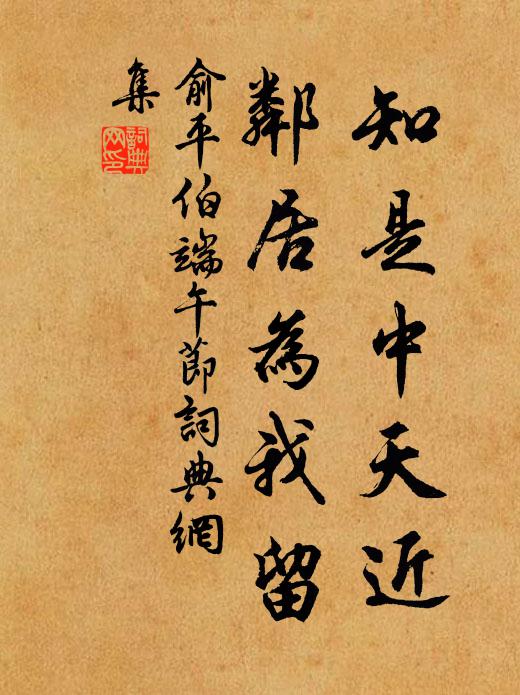 知是中天近
鄰居為我留
俞平伯端午節詞典網
集
詞典
网印